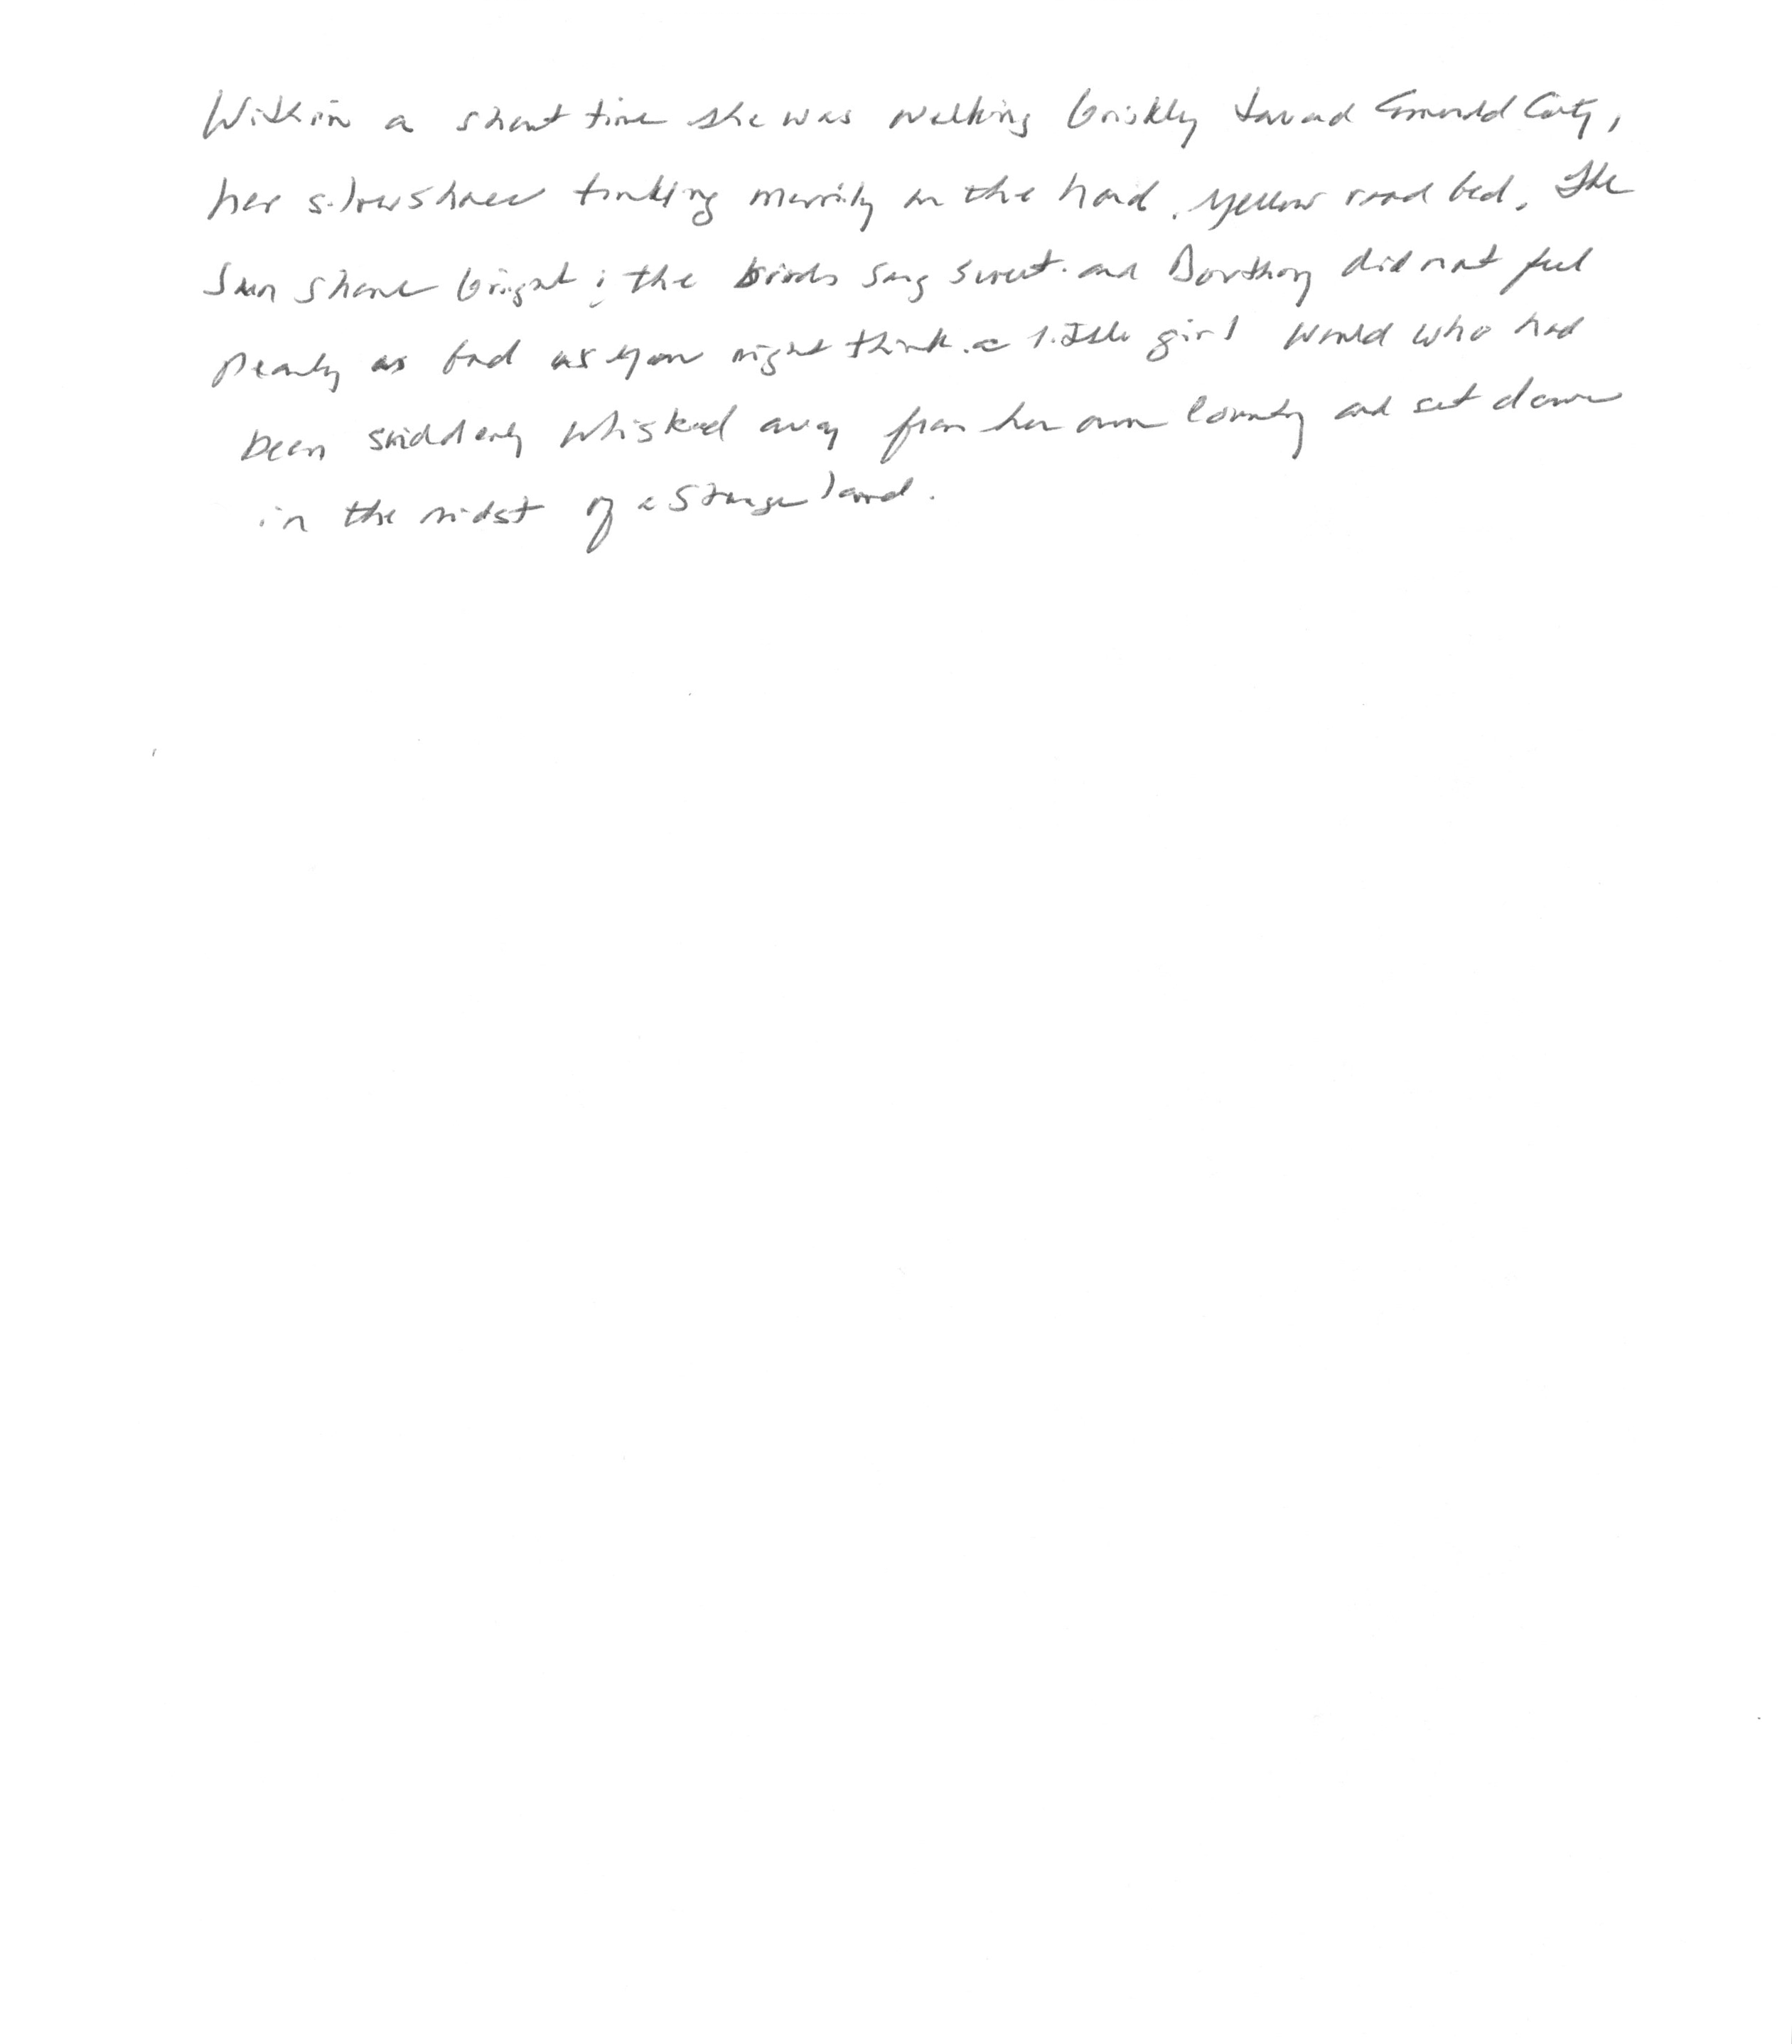 Within a short time she was walking briskly toward Emerald City,
her silver shoes tinkling merrily on the hard, yellow road bed. The
sun shone bright; the birds sang sweet and Dorthory did not feel
nearly as bad as you might think a little girl would who had
been suddenly whisked away from her own country and set down
in the midst of a strange land.